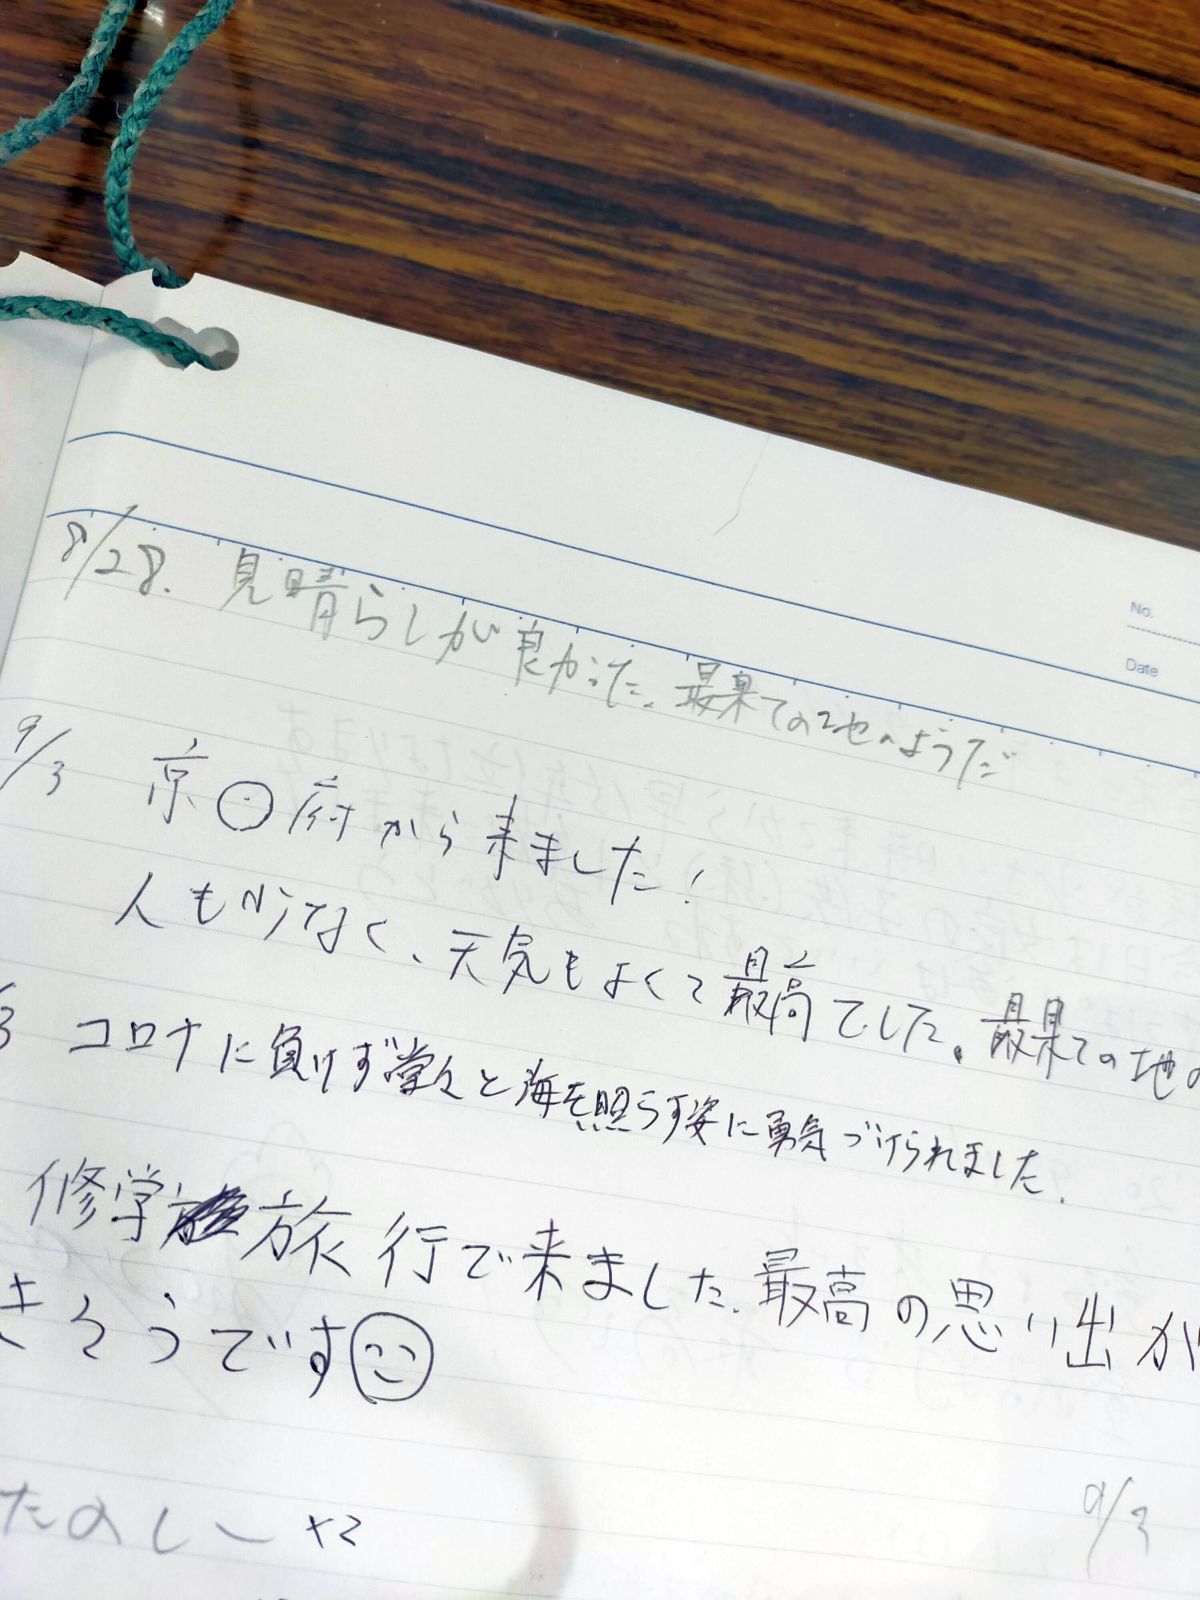 No.
Date
8/28. 見晴らしが良かった。最果ての地のようだ
9/3 京 府から来ました!
人も少なく、天気もよくて最高でした。最果ての地の
3 コロナに負けず堂々と海を照らす姿に勇気づけられました.
修学旅行で来ました.最高の思い出が
きそうです
たのしー ×2
9/3